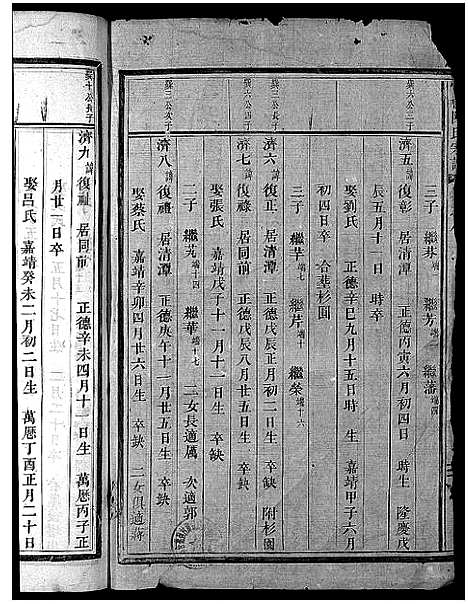 三子 繼 繼芳 繼藩
濟五 諱復彰 居清潭 正德丙寅六月初四日 時生 隆慶戊
辰五月十一日 時卒
娶劉氏 正德辛巳九月十五日 時生 嘉靖甲子六月
初四日卒 合葬杉園
癸三公長子
三子 繼芊 繼芹 端十 繼榮 端十六
濟六 諱復正 居清潭 正德戊辰正月初二日生 卒缺 附杉園
癸六公四子
濟七 諱復祿 居同前 正德戊辰八月廿五日生 卒缺
娶張氏 嘉靖戊子十一月十一日生 卒缺
二子 繼光 端十四 繼華 端十七 二女長適厲 次適郭
癸三公次子
濟八 諱復禮 居清潭 正德庚午十一月廿五日生 卒缺
娶蔡氏 嘉靖辛卯四月廿六日生 卒缺 二女俱適蔣
癸十公長子
濟九 諱復祉 居同前 正德辛未四月十一日生 萬曆丙子正
月廿一日卒
娶呂氏 嘉靖癸未二月初二日生 萬曆丁酉正月二十日